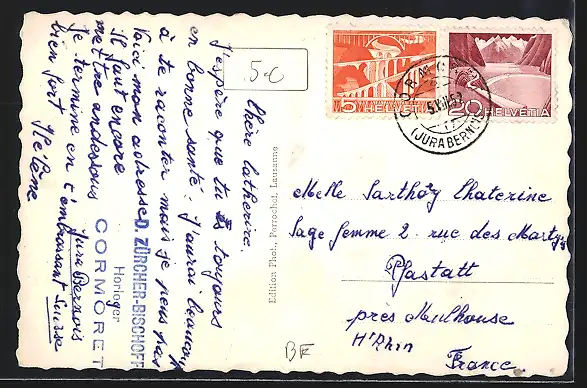 5.-
Chère Catherine.
J'espère que tu es toujours
en bonne santé. J'aurai beaucoup
à te raconter mais je peux pas
Voici mon adresse
Il faut encore
mettre endessous
Je termine en t'embrassant
bien fort Hélène
D. ZÜRCHER-BISCHOFF
Horloger
CORMORET
Jura Bernois
Suisse
Edition Phot. Perrochet, Lausanne
5 HELVETIA
20 HELVETIA
CORMORET
(JURA BERNOIS)
Melle Sarthory Chaterine
Sage femme 2. rue des Martyrs
Pfastatt
près Mulhouse
Ht Rhin
France.
BE